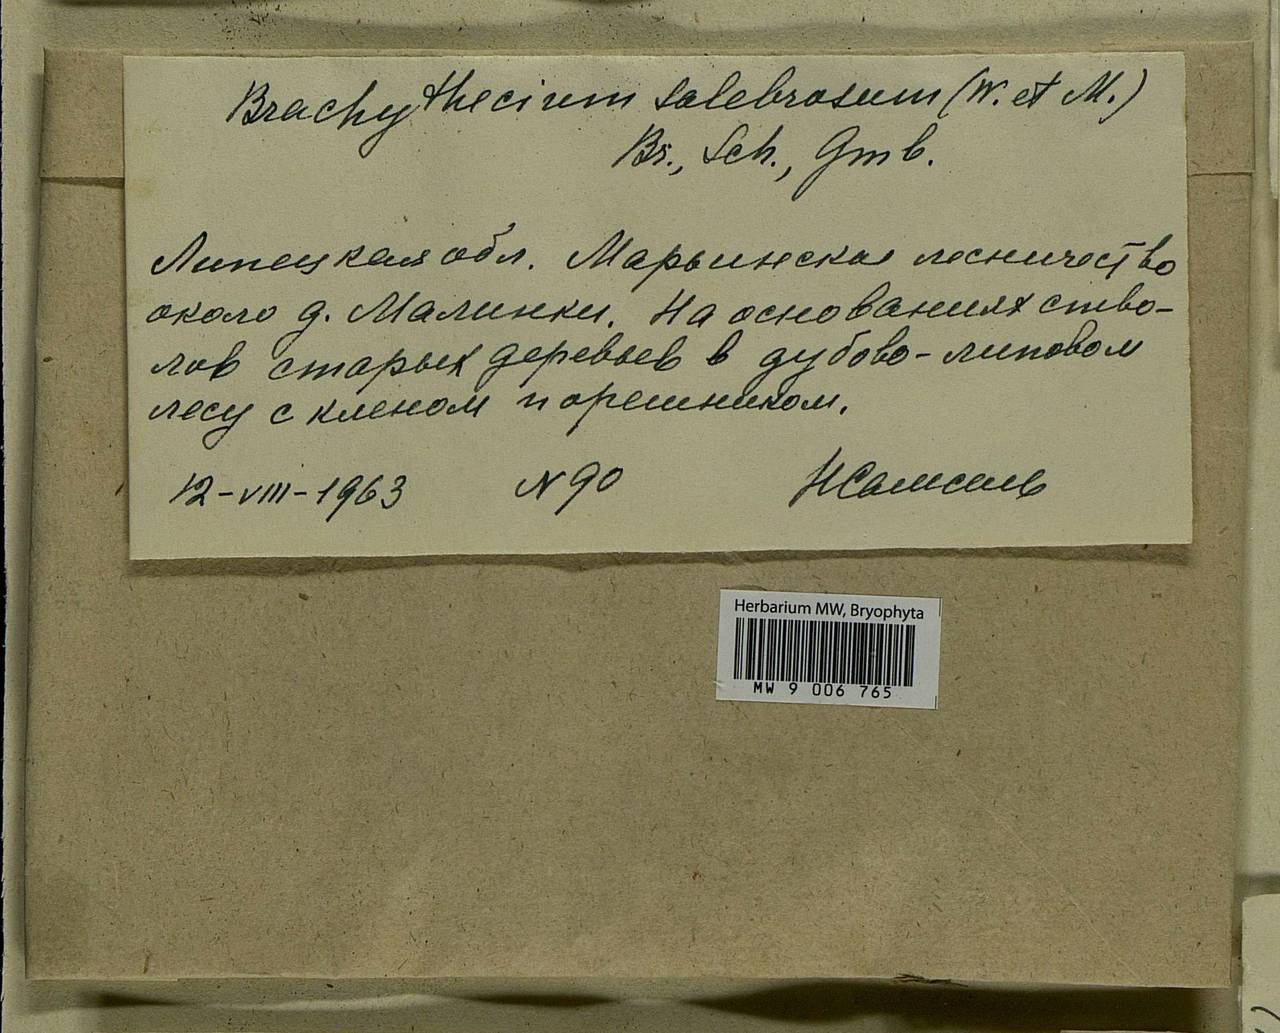 Brachythecium salebrosum (W. et M.)
Br., Sch., Gmb.
Липецкая обл. Марьинское лесничество
около д. Малинки. На основаниях ство-
лов старых деревьев в дубово-липовом
лесу с кленом и орешником.
12-VIII-1963 N 90 НСамсель
Herbarium MW, Bryophyta
MW 9 006 765